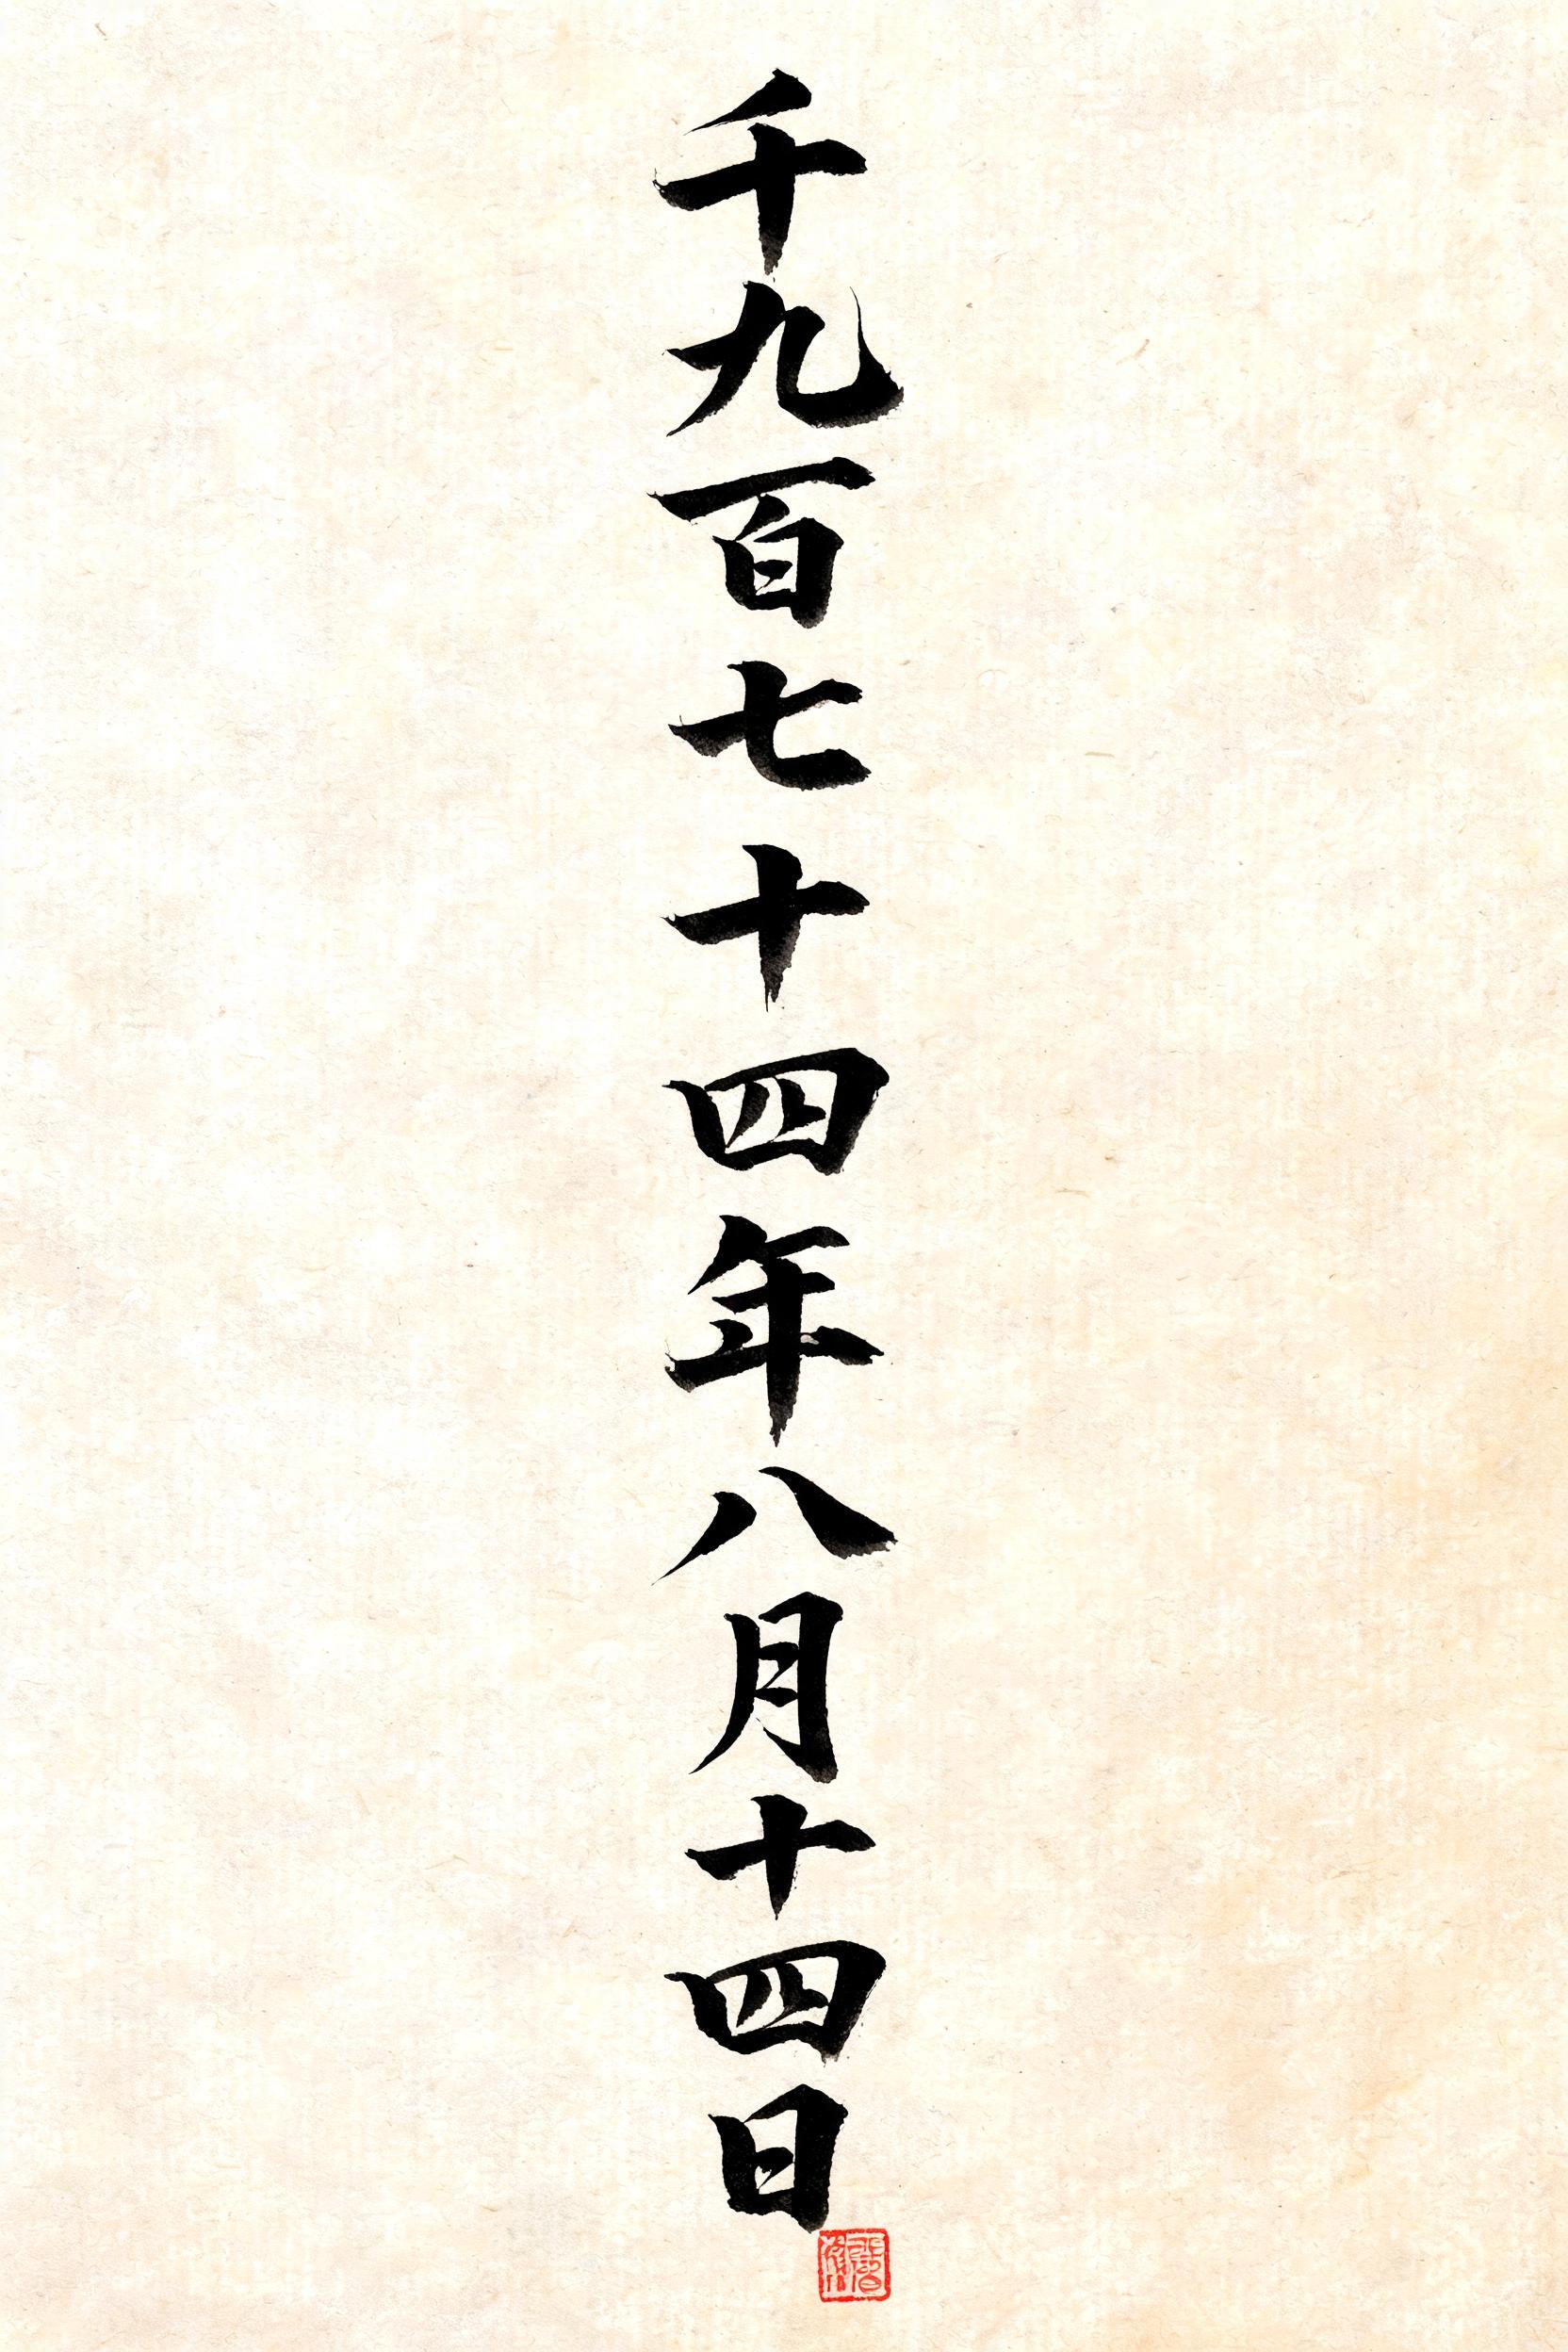 千九百七十四年八月十四日